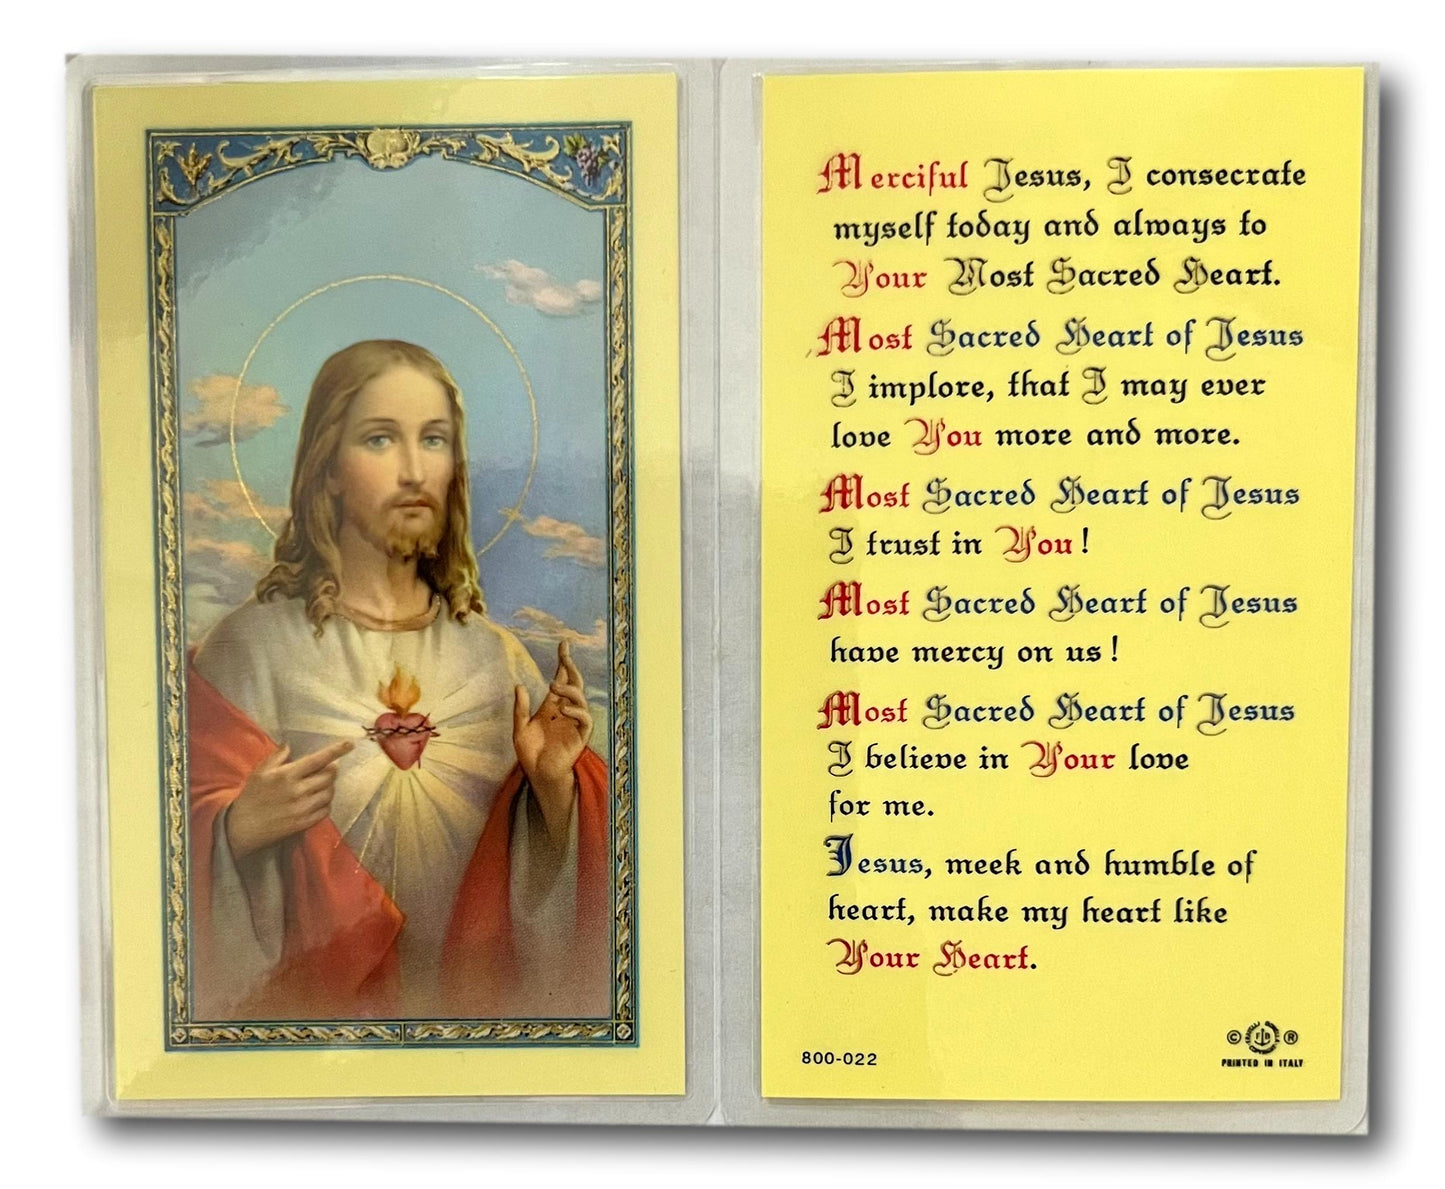 Merciful Jesus, I consecrate
myself today and always to
Your Most Sacred Heart.
Most Sacred Heart of Jesus
I implore, that I may ever
love You more and more.
Most Sacred Heart of Jesus
I trust in You!
Most Sacred Heart of Jesus
have mercy on us!
Most Sacred Heart of Jesus
I believe in Your love
for me.
Jesus, meek and humble of
heart, make my heart like
Your Heart.
800-022
© ®
PRINTED IN ITALY